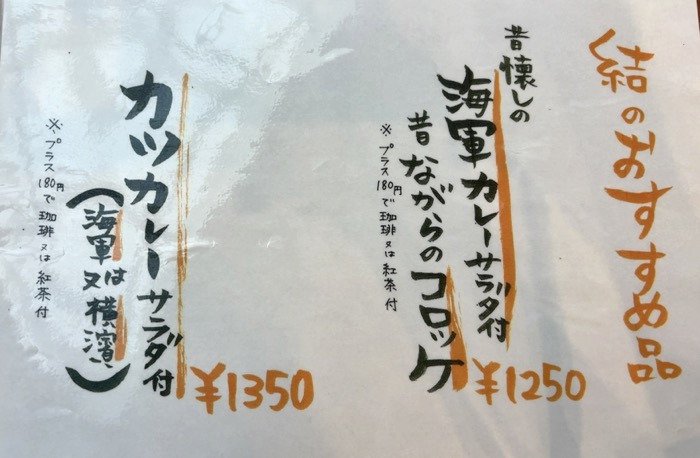 結のおすすめ品
昔懐しの
海軍カレーサラダ付
昔ながらのコロッケ
¥1250
※プラス180円で珈琲又は紅茶付
カツカレーサラダ付
¥1350
(海軍又は横濱)
※プラス180円で珈琲又は紅茶付